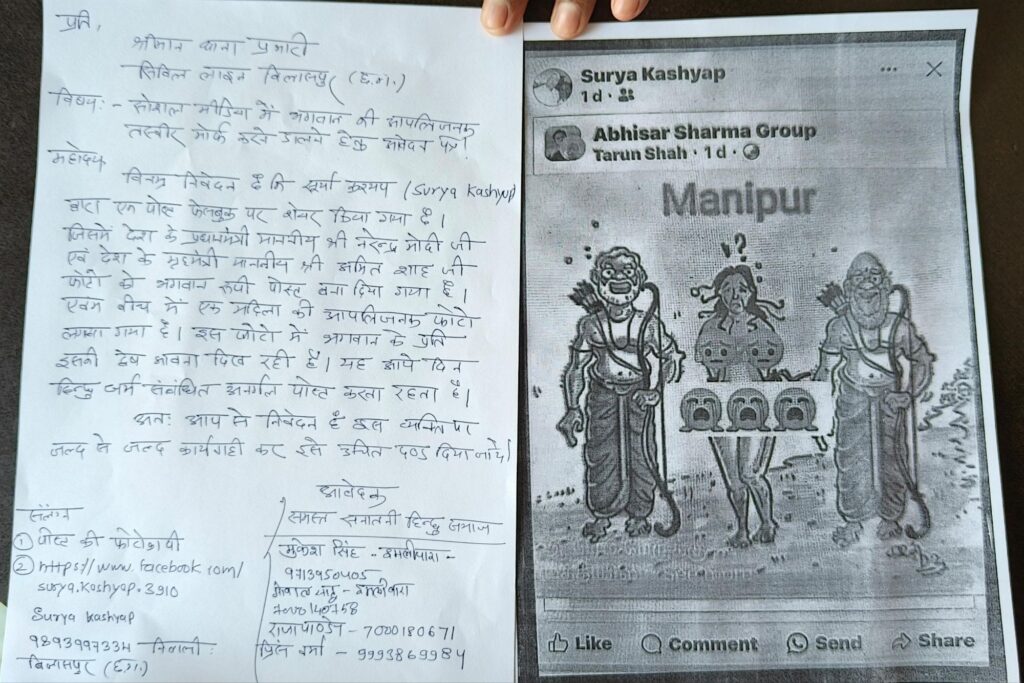 प्रति,
श्रीमान थाना प्रभारी
सिविल लाइन बिलासपुर (छ.ग.)
विषय:- सोशल मीडिया में भगवान की आपत्तिजनक
तस्वीर मोर्फ करके डालने हेतु आवेदन पत्र।
महोदय
विनम्र निवेदन है कि सूर्या कश्यप (Surya Kashyap)
द्वारा एक पोस्ट फेसबुक पर शेयर किया गया है।
जिसमें देश के प्रधानमंत्री माननीय श्री नरेन्द्र मोदी जी
एवं देश के गृहमंत्री माननीय श्री अमित शाह जी
फोटो को भगवान रूपी पोस्ट बना दिया गया है।
एवम बीच में एक महिला की आपत्तिजनक फोटो
लगाया गया है। इस फोटो में भगवान के प्रति
इसकी द्वेष भावना दिख रही है। यह आये दिन
हिन्दू धर्म संबंधित अनर्गल पोस्ट करता रहता है।
अतः आप से निवेदन है इस व्यक्ति पर
जल्द से जल्द कार्यवाही कर इसे उचित दण्ड दिया जाये।
आवेदक
समस्त सनातनी हिन्दु समाज
मुकेश सिंह - इमलीपारा -
9713950405
साहू - इमलीपारा
राजा पाण्डेय - 7000180671
प्रिंस वर्मा - 9993869984
संलग्न
① पोस्ट की फोटोकापी
② https://www.facebook.com/
surya.kashyap.3910
Surya kashyap
निवासी:
बिलासपुर (छ.ग.)
Surya Kashyap
1 d ·
Abhisar Sharma Group
Tarun Shah · 1 d ·
Manipur
??
Like
Comment
Send
Share